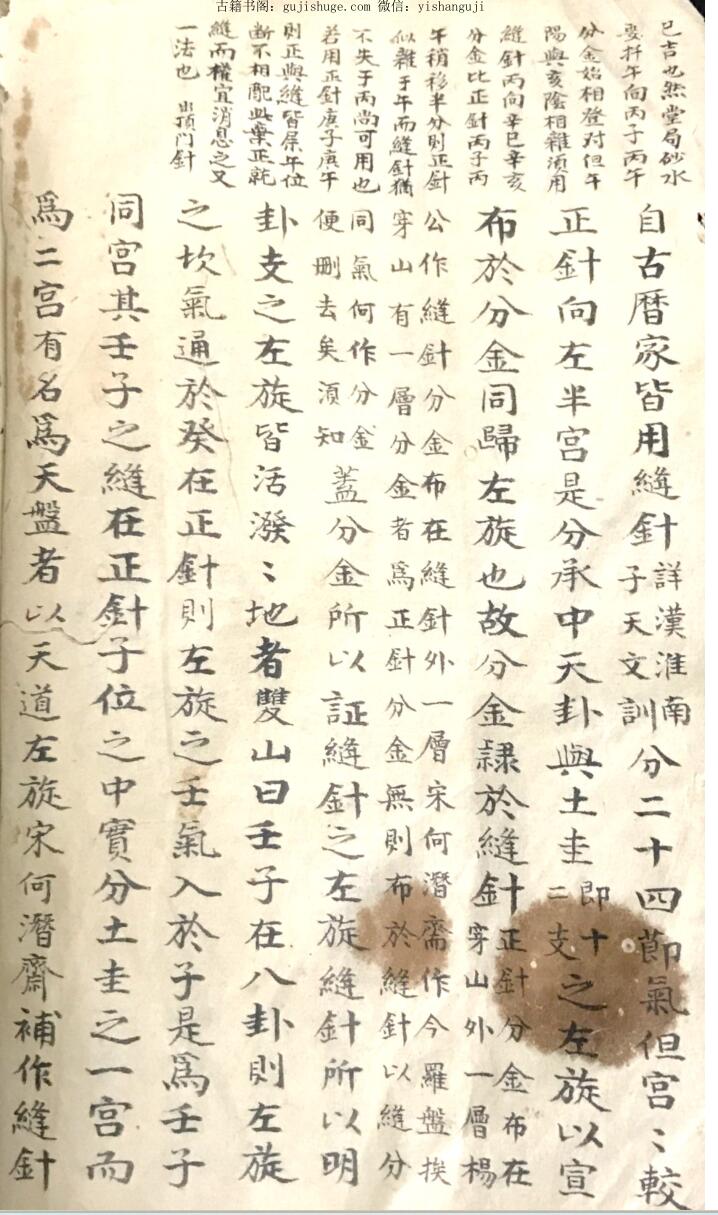 古籍书阁：gujishuge.com 微信：yishanguji
已吉也然堂局砂水
要扦午向丙子丙午
分金始相登对但午
陽與亥陰相雜須用
縫針丙向辛巳辛亥
分金比正針丙子丙
午稍移半分則正針
似雜于午而縫針猶
不失于丙尚可用也
若用正針庚子庚午
則正與縫皆屬午位
断不相配此棄正就
縫而權宜消息之又
一法也 出頂門針
自古曆家皆用縫針詳漢淮南子天文訓分二十四節氣但宮〻較
正針向左半宮是分承中天卦與土圭即十二支之左旋以宣
布於分金同歸左旋也故分金隸於縫針正針分金布在穿山外一層楊
公作縫針分金布在縫針外一層宋何潛齋作今羅盤挨
穿山有一層分金者為正針分金無則布於縫針以縫分
同氣何作分金便刪去矣須知蓋分金所以証縫針之左旋縫針所以明
卦支之左旋皆活潑〻地者雙山曰壬子在八卦則左旋
之坎氣通於癸在正針則左旋之壬氣入於子是爲壬子
同宮其壬子之縫在正針子位之中實分土圭之一宮而
爲二宮有名爲天盤者以天道左旋宋何潛齋補作縫針